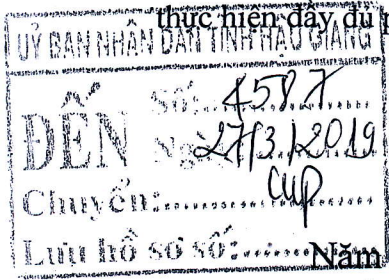 thực hiện đầy đủ
UỶ BAN NHÂN DÂN TỈNH HẬU GIANG
ĐẾN
Số: 4587
Ngày 27/3/2019
Chuyển:
Lưu hồ sơ số:
Năm